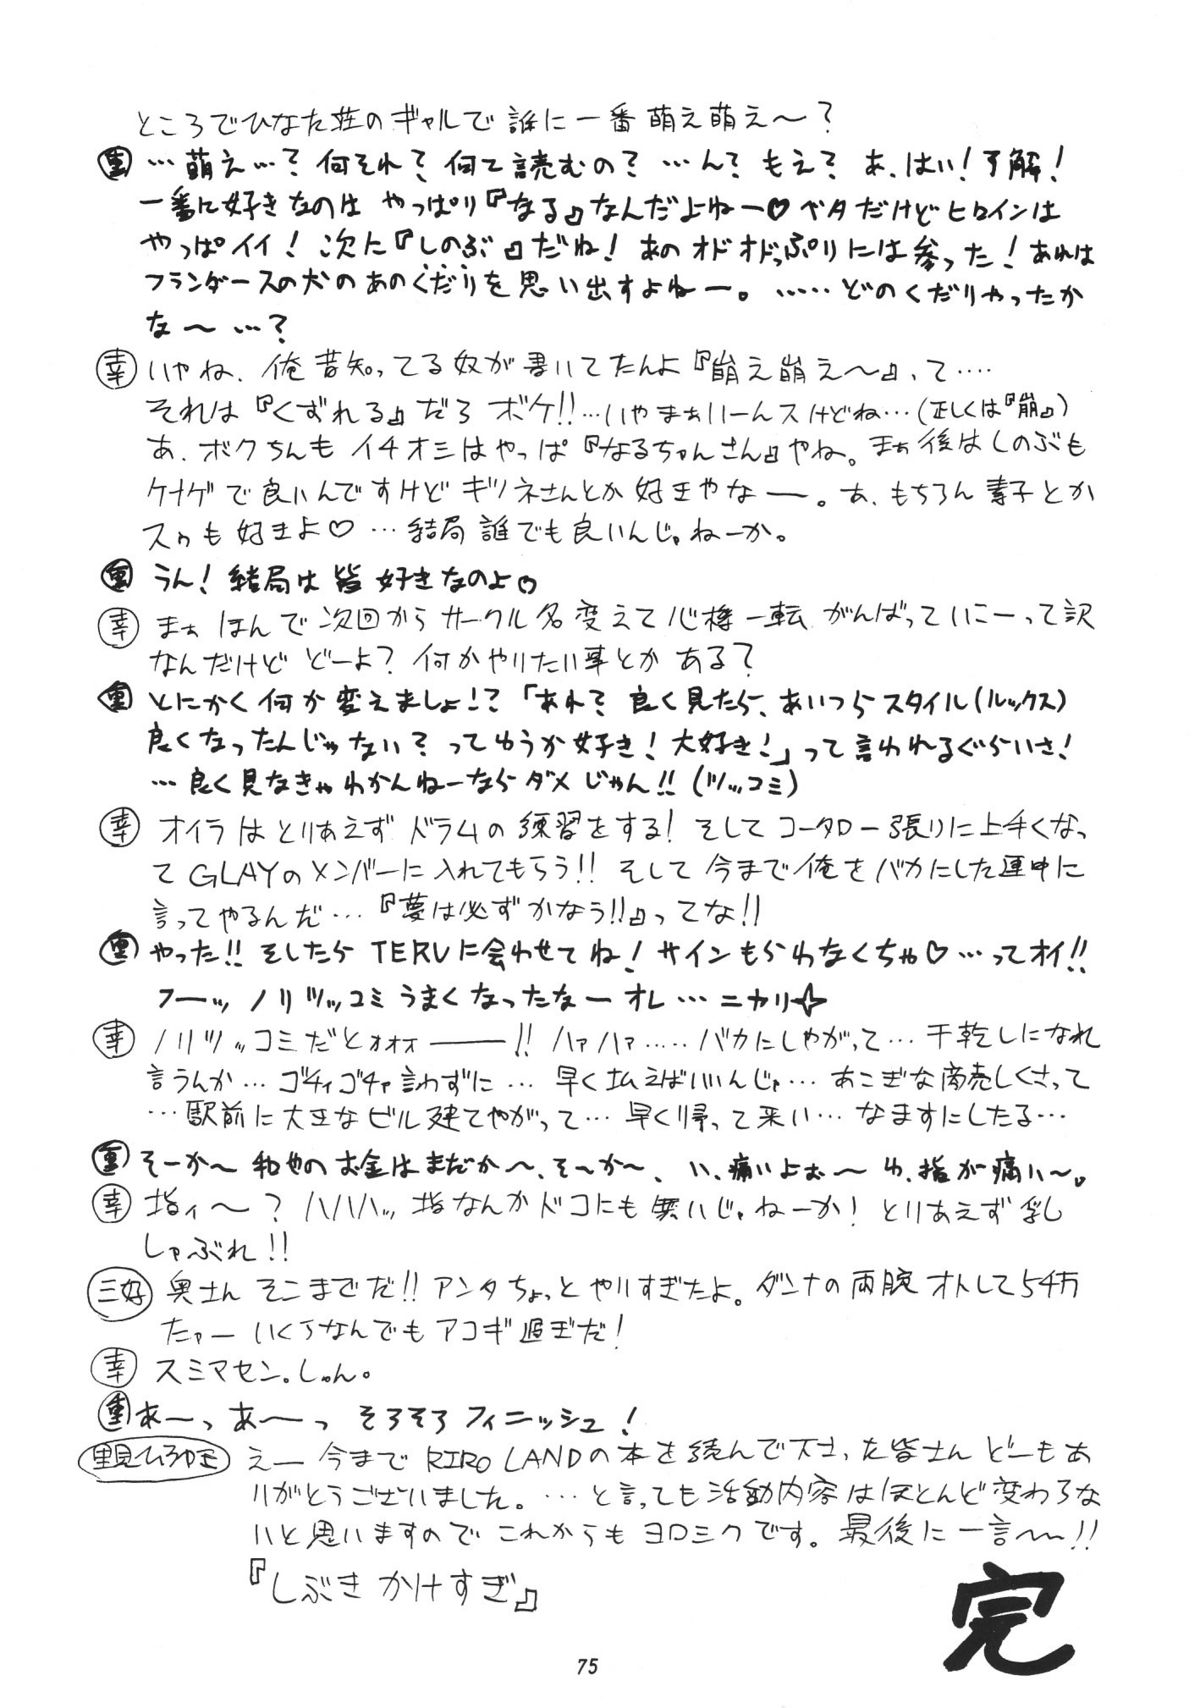 ところでひなた荘のギャルで誰に一番萌え萌え〜?
…萌え…?何それ?何て読むの?…ん?もえ?あ、はい!了解!
一番に好きなのはやっぱり『なる』なんだよねー♡ベタだけどヒロインは
やっぱイイ!次に『しのぶ』だね!あのオドオドっぷりには参った!あれは
フランダースの犬のあのくだりを思い出すよねー。……どのくだりやったか
な〜…?
幸 いやね、俺昔知ってる奴が書いてたんよ『崩え崩え〜』、って‥‥
それは『くずれる』だろボケ!!…いやまぁいーんスけどね…(正しくは『崩』)
あ、ボクちんもイチオシはやっぱ『なるちゃんさん』やね。まぁ後はしのぶも
ケナゲで良いんですけどキツネさんとか好きやなー。あ、もちろん素子とか
スゥも好きよ♡…結局誰でも良いんじゃねーか。
うん!結局は皆好きなのよ♡
幸 まぁほんで次回からサークル名変えて心機一転がんばっていこーって訳
なんだけどどーよ?何かやりたい事とかある?
とにかく何か変えましょ!?「あれ?良く見たら、あいつらスタイル(ルックス)
良くなったんじゃない?ってゆうか好き!大好き!」って言われるぐらいさ!
…良く見なきゃわかんねーならダメじゃん!!(ツッコミ)
幸 オイラはとりあえずドラムの練習をする!そしてコータロー張りに上手くなっ
てGLAYのメンバーに入れてもらう!!そして今まで俺をバカにした連中に
言ってやるんだ…『夢は必ずかなう!!』ってな!!
やった!!そしたらTERUに会わせてね!サインもらわなくちゃ♡…ってオイ!!
フーッノリツッコミうまくなったなーオレ…ニカリ☆
幸 ノリツッコミだとォォォ――!!ハァハァ……バカにしやがって…干乾しになれ
言うんか…ゴチィゴチャ言わずに…早く払えばいいんじゃ…あこぎな商売しくさって
…駅前に大きなビル建てやがって…早く帰って来い…なますにしたる…
そーか〜和也のお金はまだか〜、そ〜か〜、い、痛いよぉ〜ゆ、指が痛い〜。
幸 指ィ〜?ハハハッ指なんかドコにも無いじゃねーか!とりあえず乳
しゃぶれ!!
三好 奥さんそこまでだ!!アンタちょっとやりすぎたよ。ダンナの両腕オトして5千万
たァーいくらなんでもアコギ過ぎだ!
幸 スミマセン。しゅん。
あーっあ〜っそろそろフィニッシュ!
里見ひろゆき えー今までRIRO LANDの本を読んで下さった皆さんどーもあ
りがとうございました。…と言っても活動内容はほとんど変わらな
いと思いますのでこれからもヨロシクです。最後に一言〜!!
『しぶきかけすぎ』
完
75